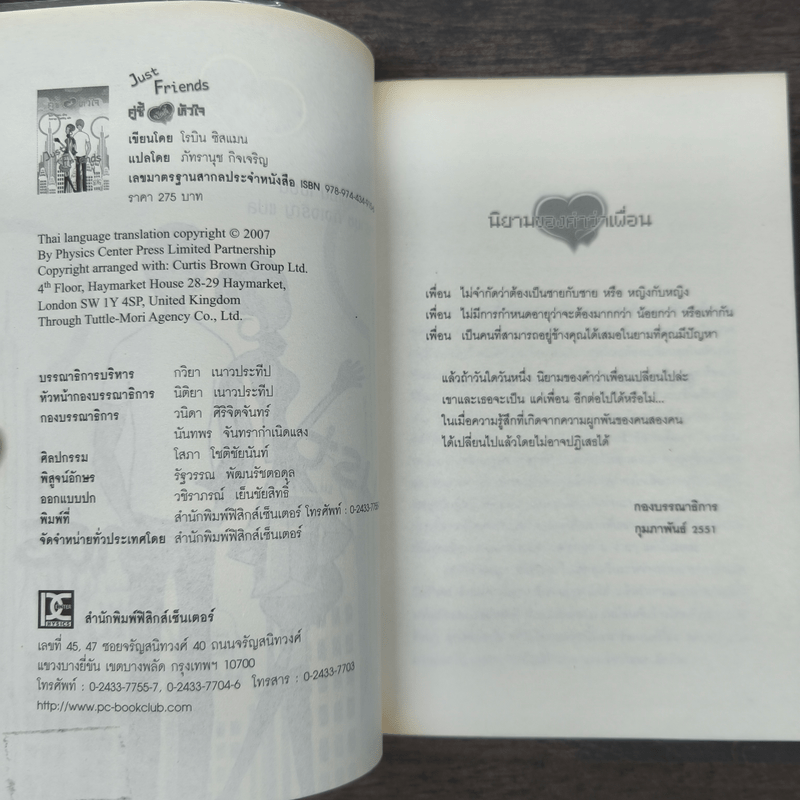 Just
Friends
คู่ซี้ หัวใจ
เขียนโดย โรบิน ซิสแมน
แปลโดย ภัทรานุช กิจเจริญ
เลขมาตรฐานสากลประจำหนังสือ ISBN 978-974-434-
ราคา 275 บาท
Thai language translation copyright © 2007
By Physics Center Press Limited Partnership
Copyright arranged with: Curtis Brown Group Ltd.
4th Floor, Haymarket House 28-29 Haymarket,
London SW 1Y 4SP, United Kingdom
Through Tuttle-Mori Agency Co., Ltd.
บรรณาธิการบริหาร กวิยา เนาวประทีป
หัวหน้ากองบรรณาธิการ นิติยา เนาวประทีป
กองบรรณาธิการ วนิดา ศิริจิตจันทร์
นันทพร จันทรากำเนิดแสง
ศิลปกรรม โสภา โชติชัยนันท์
พิสูจน์อักษร รัฐวรรณ พัฒนรัชตอดุล
ออกแบบปก วชิราภรณ์ เย็นชัยสิทธิ์
พิมพ์ที่ สำนักพิมพ์ฟิสิกส์เซ็นเตอร์ โทรศัพท์ : 0-2433-7755
จัดจำหน่ายทั่วประเทศโดย สำนักพิมพ์ฟิสิกส์เซ็นเตอร์
สำนักพิมพ์ฟิสิกส์เซ็นเตอร์
เลขที่ 45, 47 ซอยจรัญสนิทวงศ์ 40 ถนนจรัญสนิทวงศ์
แขวงบางยี่ขัน เขตบางพลัด กรุงเทพฯ 10700
โทรศัพท์ : 0-2433-7755-7, 0-2433-7704-6 โทรสาร : 0-2433-7703
http://www.pc-bookclub.com
นิยามของคำว่าเพื่อน
เพื่อน ไม่จำกัดว่าต้องเป็นชายกับชาย หรือ หญิงกับหญิง
เพื่อน ไม่มีการกำหนดอายุว่าจะต้องมากกว่า น้อยกว่า หรือเท่ากัน
เพื่อน เป็นคนที่สามารถอยู่ข้างคุณได้เสมอในยามที่คุณมีปัญหา
แล้วถ้าวันใดวันหนึ่ง นิยามของคำว่าเพื่อนเปลี่ยนไปล่ะ
เขาและเธอจะเป็น แค่เพื่อน อีกต่อไปได้หรือไม่...
ในเมื่อความรู้สึกที่เกิดจากความผูกพันของคนสองคน
ได้เปลี่ยนไปแล้วโดยไม่อาจปฏิเสธได้
กองบรรณาธิการ
กุมภาพันธ์ 2551